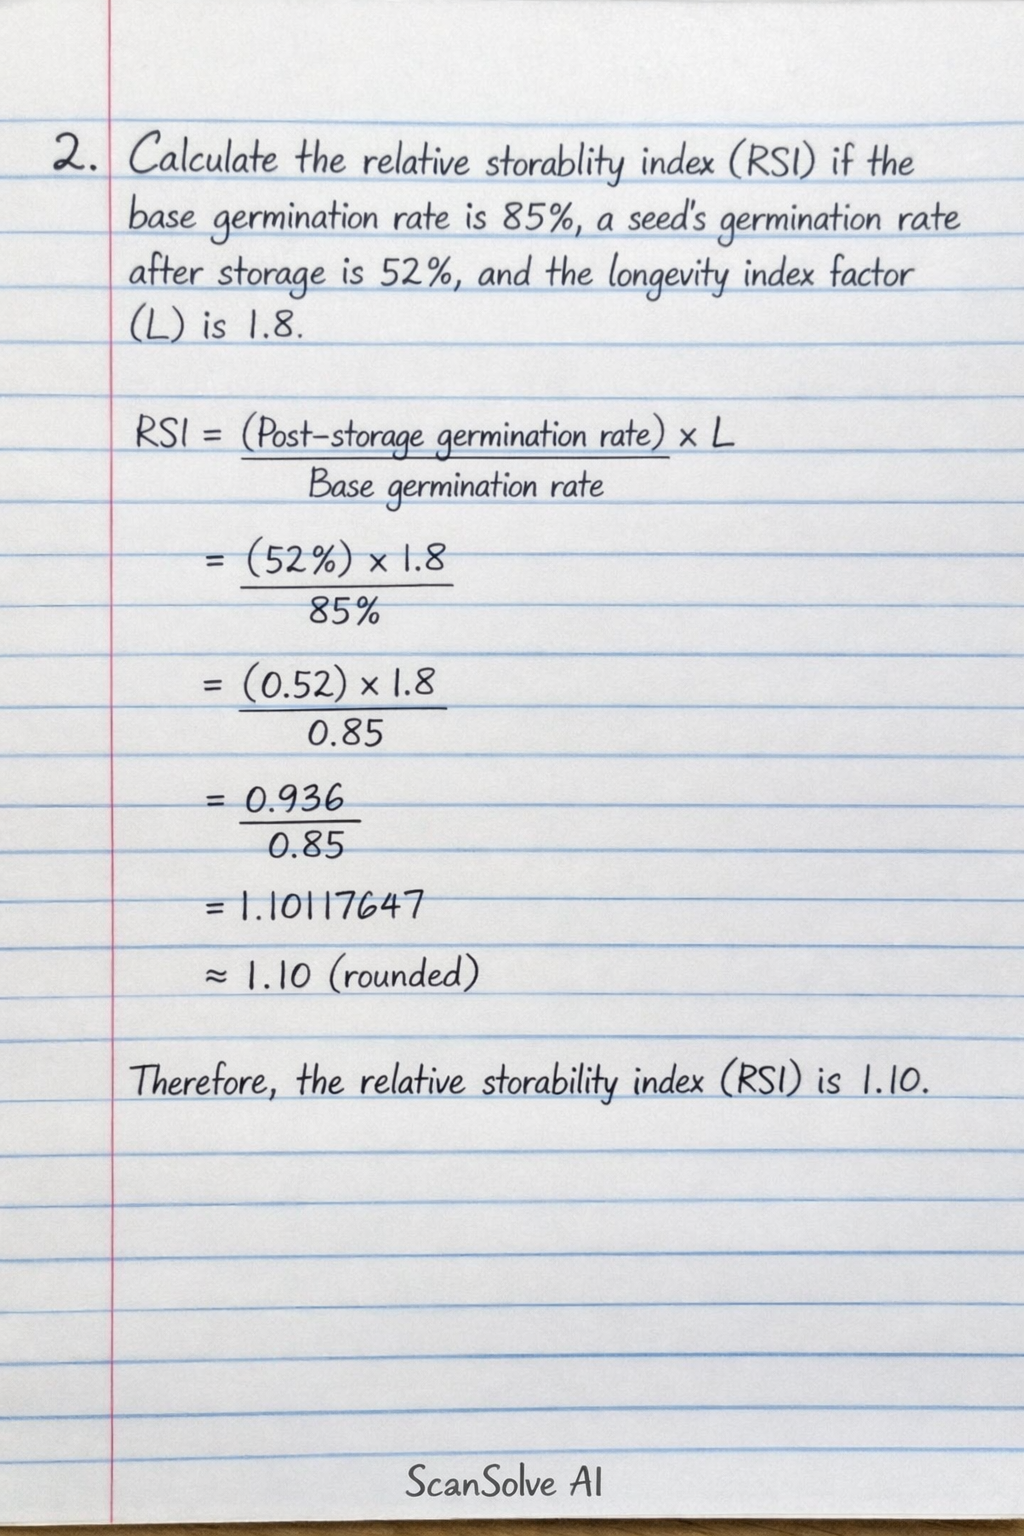 2. Calculate the relative storablity index (RSI) if the
base germination rate is 85%, a seed's germination rate
after storage is 52%, and the longevity index factor
(L) is 1.8.
RSI = (Post-storage germination rate) × L
Base germination rate
= (52%) × 1.8
85%
= (0.52) × 1.8
0.85
= 0.936
0.85
= 1.10117647
≈ 1.10 (rounded)
Therefore, the relative storability index (RSI) is 1.10.
ScanSolve AI